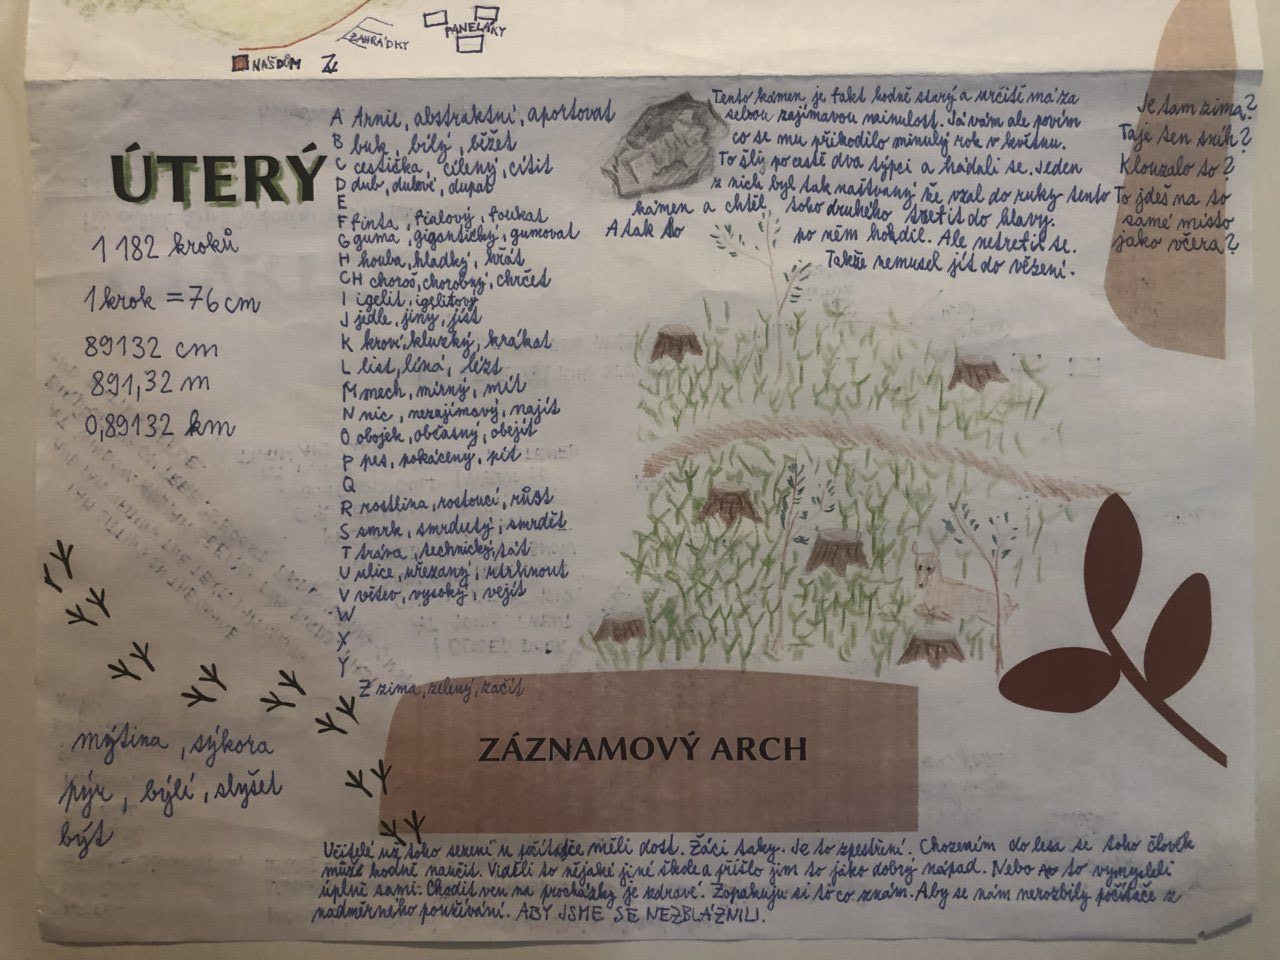 ZAHRÁDKY
PANELÁKY
NÁŠ DŮM
ÚTERÝ
1 182 kroků
1 krok = 76 cm
89132 cm
891,32 m
0,89132 km
A Arnie, abstraktní, aportovat
B buk, bílý, běžet
C cestička, cílený, cítit
D dub, dubové, dupat
E
F finta, fialový, foukat
G guma, gigantický, gumovat
H houba, hladký, hrát
CH choroš, chorobný, chrčet
I igelit, igelitový
J jedle, jiný, jíst
K kroví, kluzký, krákat
L list, líná, lézt
M mech, mírný, mít
N nic, nezajímavý, najít
O obojek, občasný, obejít
P pes, pokácený, pít
Q
R rostlina, rostoucí, růst
S smrk, smrdutý, smrdět
T tráva, technický, tát
U ulice, uřezaný, utrhnout
V větev, vysoký, vejít
W
X
Y
Z zima, zelený, začít
Tento kámen je fakt hodně starý a určitě má za
sebou zajímavou minulost. Já vám ale povím
co se mu přihodilo minulý rok v květnu.
To šli po cestě dva týpci a hádali se. Jeden
z nich byl tak naštvaný že vzal do ruky tento
kámen a chtěl toho druhého trefit do hlavy.
A tak to po něm hodil. Ale netrefil se.
Takže nemusel jít do vězení.
Je tam zima?
Taje ten sníh?
Klouzalo to?
To jdeš na to
samé místo
jako včera?
mýtina, sýkora
pýr, býlí, slyšet
být
ZÁZNAMOVÝ ARCH
Učitelé už toho sezení u počítače měli dost. Žáci taky. Je to zpestření. Chozením do lesa se toho člověk
může hodně naučit. Viděli to nějaké jiné škole a přišlo jim to jako dobrý nápad. Nebo to vymysleli
úplně sami. Chodit ven na procházky je zdravé. Zopakuju si to co znám. Aby se nám nerozbily počítače z
nadměrného používání. ABY JSME SE NEZBLÁZNILI.